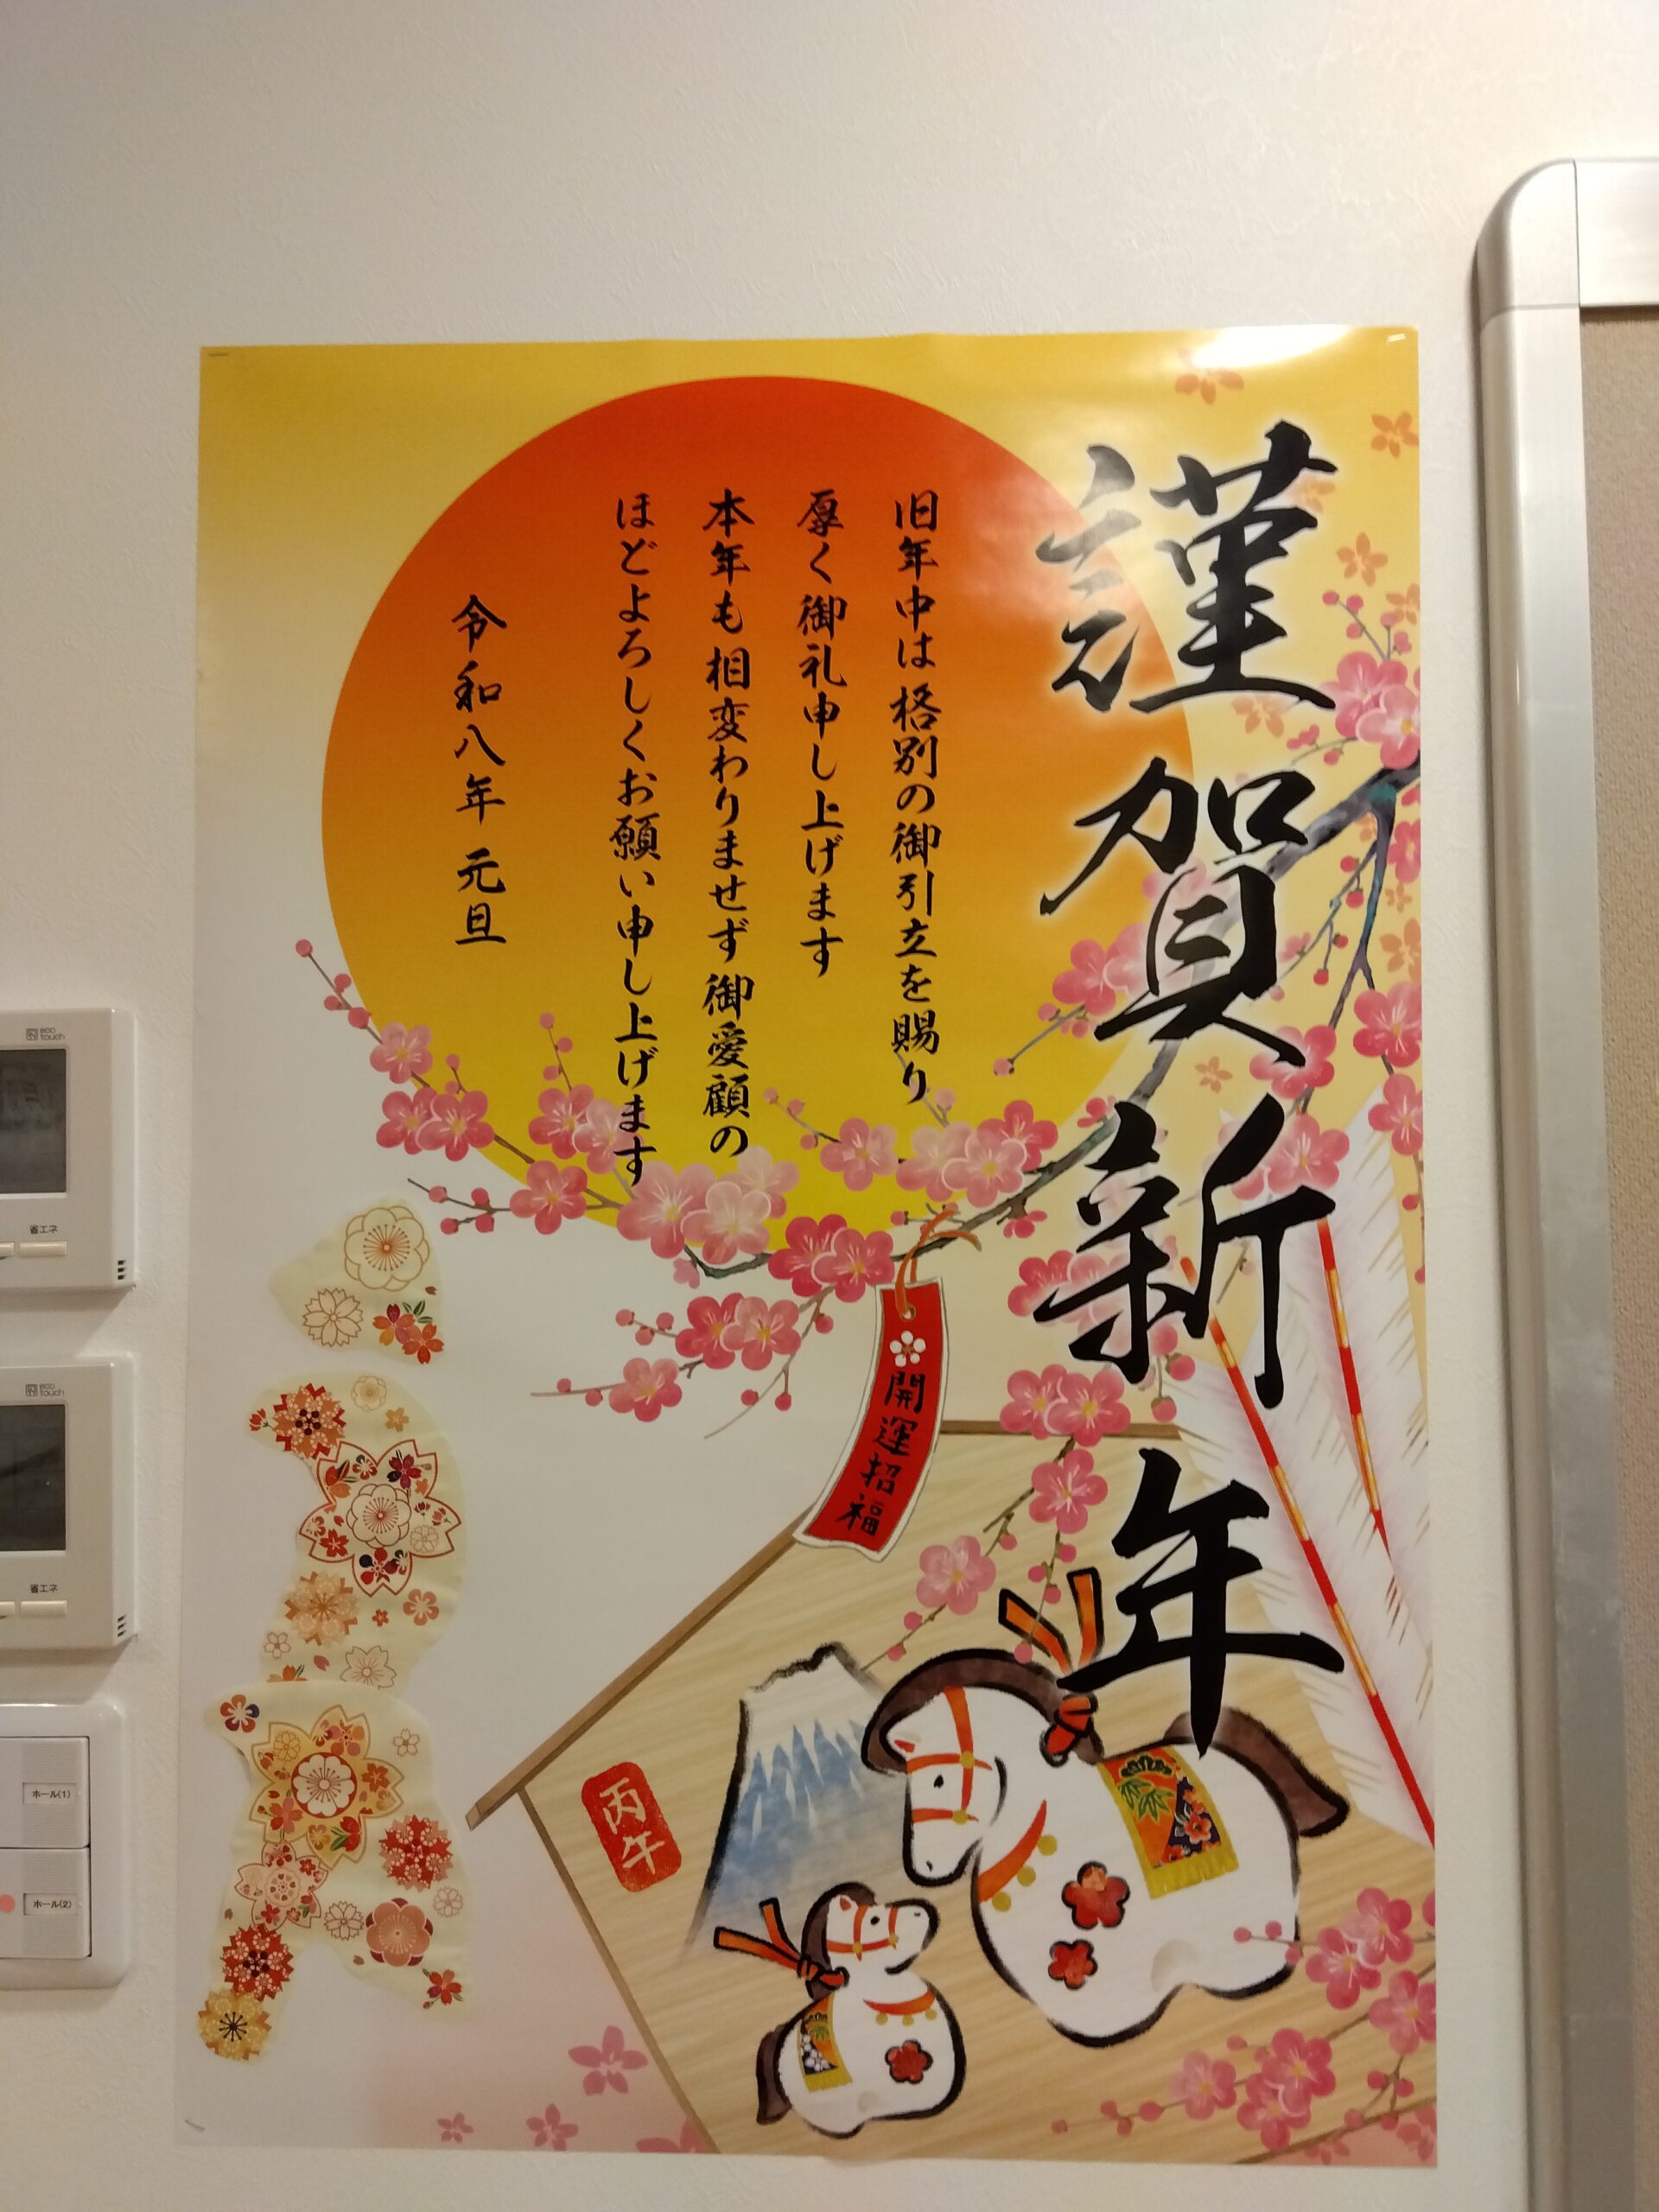 謹賀新年
旧年中は格別の御引立を賜り
厚く御礼申し上げます
本年も相変わりませず御愛顧の
ほどよろしくお願い申し上げます
令和八年 元旦
開運招福
丙午
eco touch
省エネ
eco touch
省エネ
ホール(1)
ホール(2)